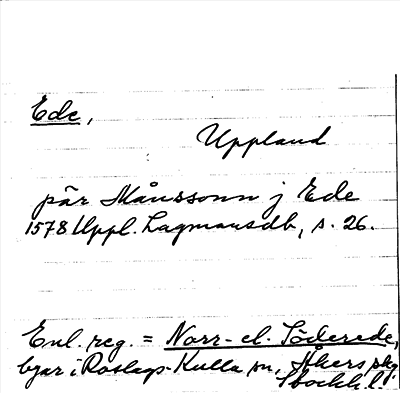 Ede,
Uppland
pär Månssonn j Ede
1578 Uppl. Lagmansdb, s. 26.
Enl. reg. = Norr- el. Söderede,
byar i Roslags-Kulla sn, Åkers skg
Stockh. l.